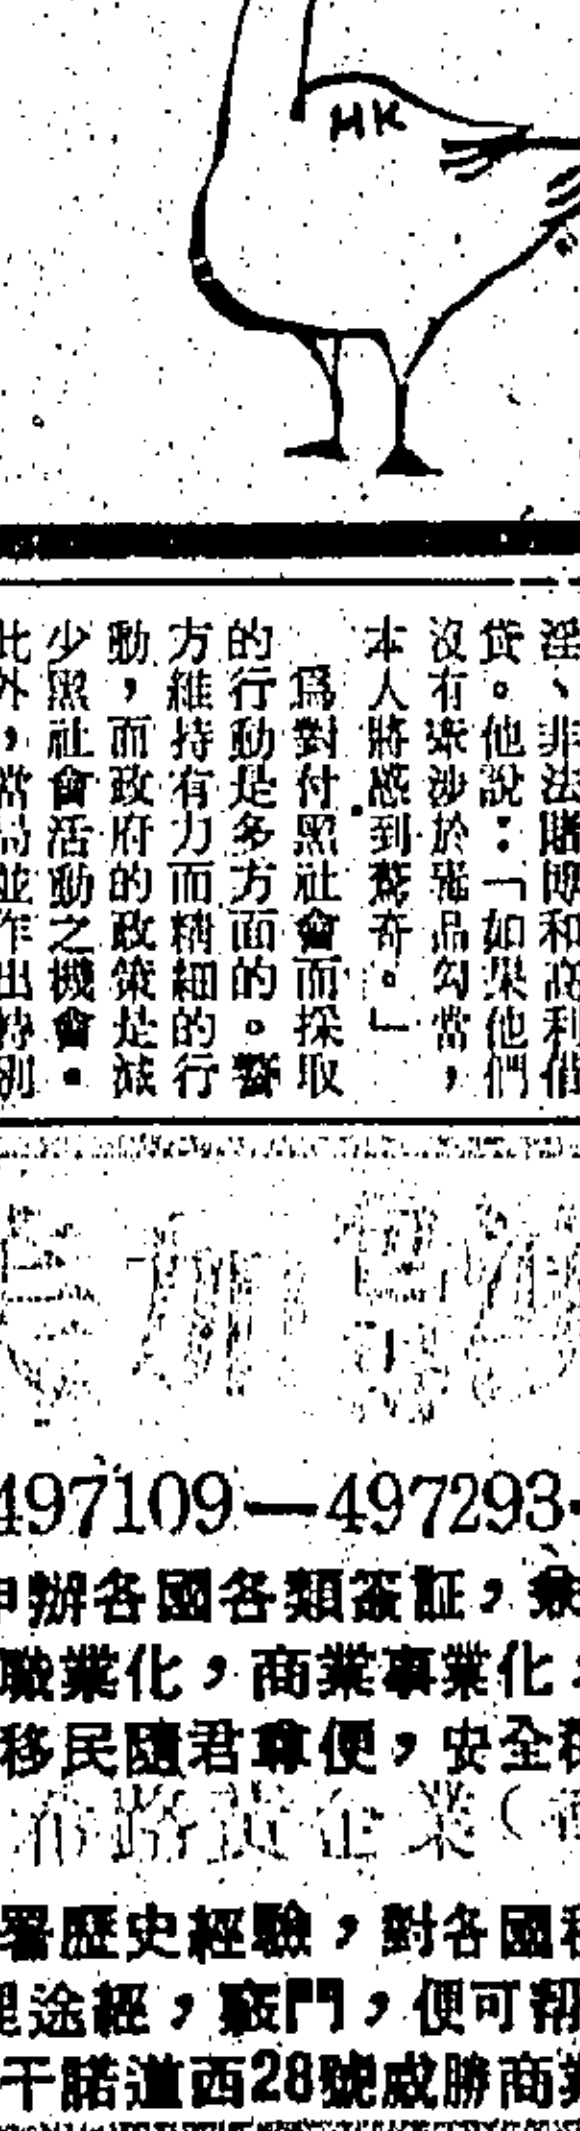 HK
淫、非法賭博和高利借
貸。他說：「如果他們
沒有牽涉於毒品勾當，
本人將感到驚奇。」
爲對付黑社會而採取
的行動是多方面的。警
方維持有力而精細的行
動，而政府的政策是減
少黑社會活動之機會。
此外，當局並作出特別
497109—497293
申辦各國各類簽証，兼
職業化，商業專業化，
移民隨君尊便，安全
企業（
署歷史經驗，對各國
途經，竅門，便可幫
干諾道西28號威勝商業